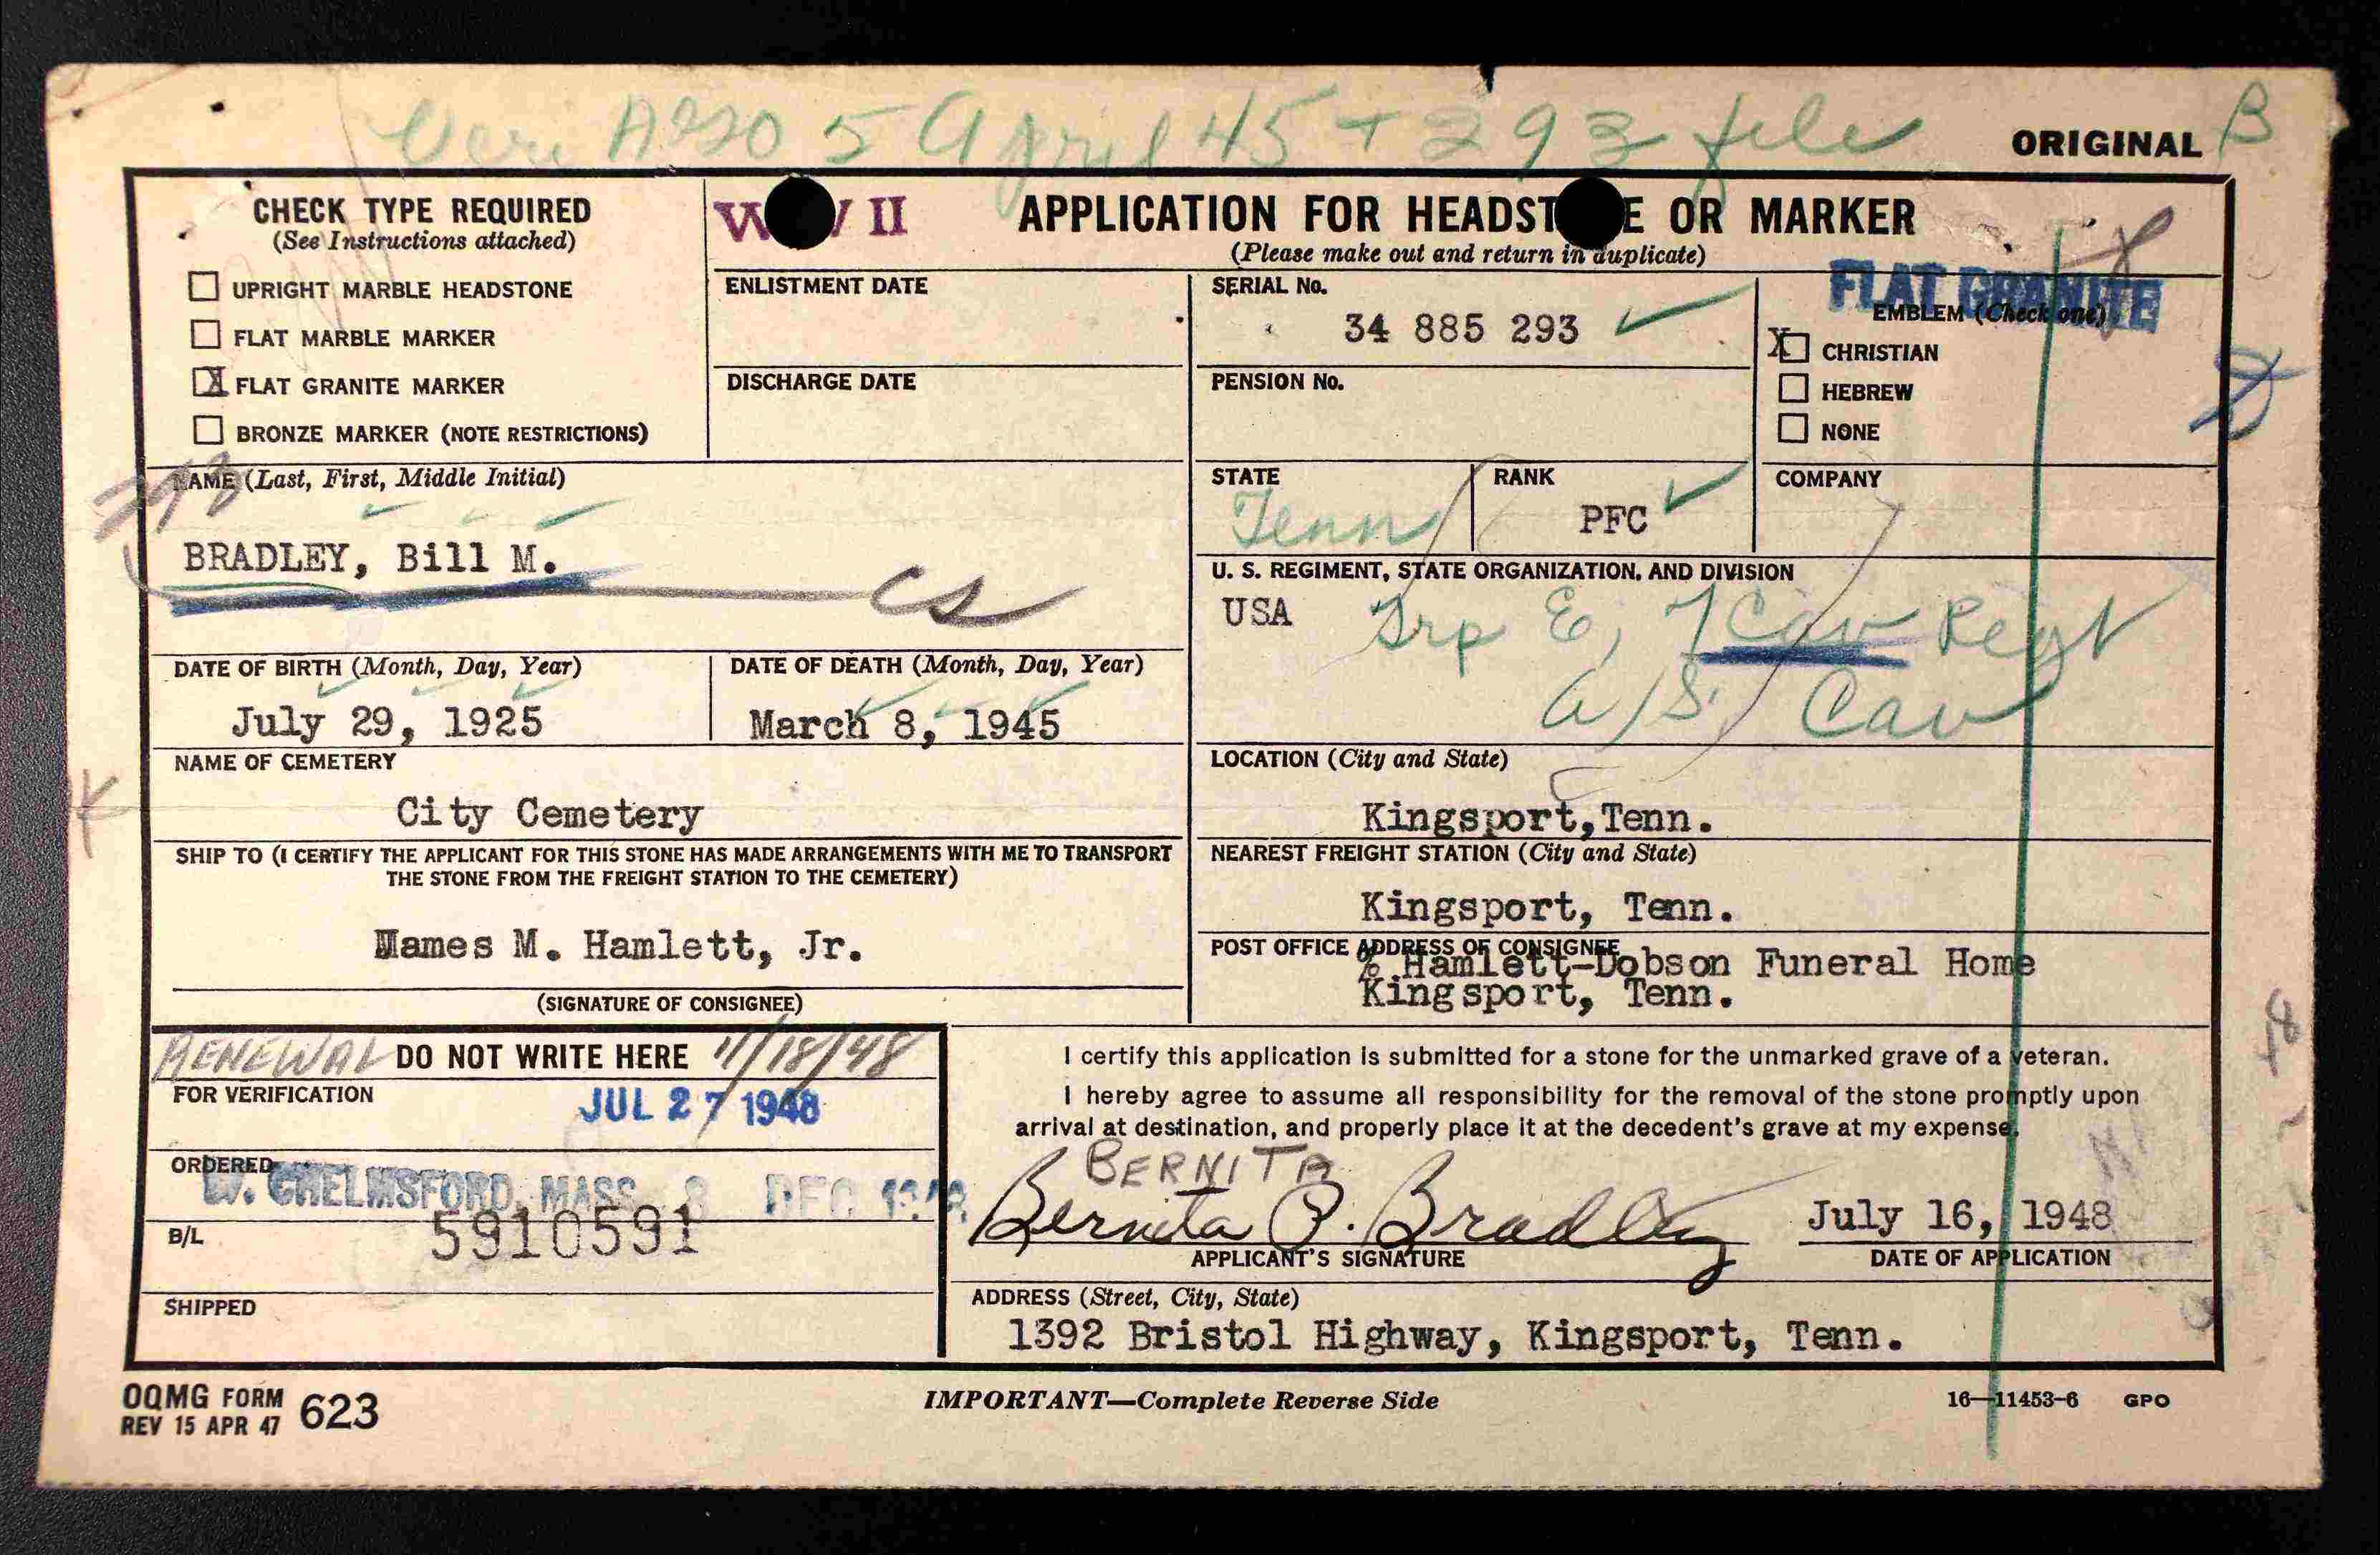 April 45 + 293 file
ORIGINAL B
CHECK TYPE REQUIRED
(See Instructions attached)
UPRIGHT MARBLE HEADSTONE
FLAT MARBLE MARKER
X FLAT GRANITE MARKER
BRONZE MARKER (NOTE RESTRICTIONS)
W II
APPLICATION FOR HEADST E OR MARKER
(Please make out and return in duplicate)
ENLISTMENT DATE
DISCHARGE DATE
SERIAL No.
34 885 293
PENSION No.
FLAT GRANITE
EMBLEM (Check one)
X CHRISTIAN
HEBREW
NONE
NAME (Last, First, Middle Initial)
BRADLEY, Bill M.
CS
STATE
Tenn
RANK
PFC
COMPANY
U. S. REGIMENT, STATE ORGANIZATION, AND DIVISION
USA Trp E, 7 Cav Regt
Cav
DATE OF BIRTH (Month, Day, Year)
July 29, 1925
DATE OF DEATH (Month, Day, Year)
March 8, 1945
NAME OF CEMETERY
City Cemetery
LOCATION (City and State)
Kingsport, Tenn.
SHIP TO (I CERTIFY THE APPLICANT FOR THIS STONE HAS MADE ARRANGEMENTS WITH ME TO TRANSPORT
THE STONE FROM THE FREIGHT STATION TO THE CEMETERY)
James M. Hamlett, Jr.
(SIGNATURE OF CONSIGNEE)
NEAREST FREIGHT STATION (City and State)
Kingsport, Tenn.
POST OFFICE ADDRESS OF CONSIGNEE
% Hamlett-Dobson Funeral Home
Kingsport, Tenn.
RENEWAL DO NOT WRITE HERE 11/18/48
FOR VERIFICATION
JUL 27 1948
ORDERED
W. CHELMSFORD, MASS. 8 DEC 1948
B/L
5910591
SHIPPED
I certify this application is submitted for a stone for the unmarked grave of a veteran.
I hereby agree to assume all responsibility for the removal of the stone promptly upon
arrival at destination, and properly place it at the decedent's grave at my expense.
BERNITA
Bernita P. Bradley
APPLICANT'S SIGNATURE
July 16, 1948
DATE OF APPLICATION
ADDRESS (Street, City, State)
1392 Bristol Highway, Kingsport, Tenn.
OQMG FORM 623
REV 15 APR 47
IMPORTANT—Complete Reverse Side
16—11453-6 GPO